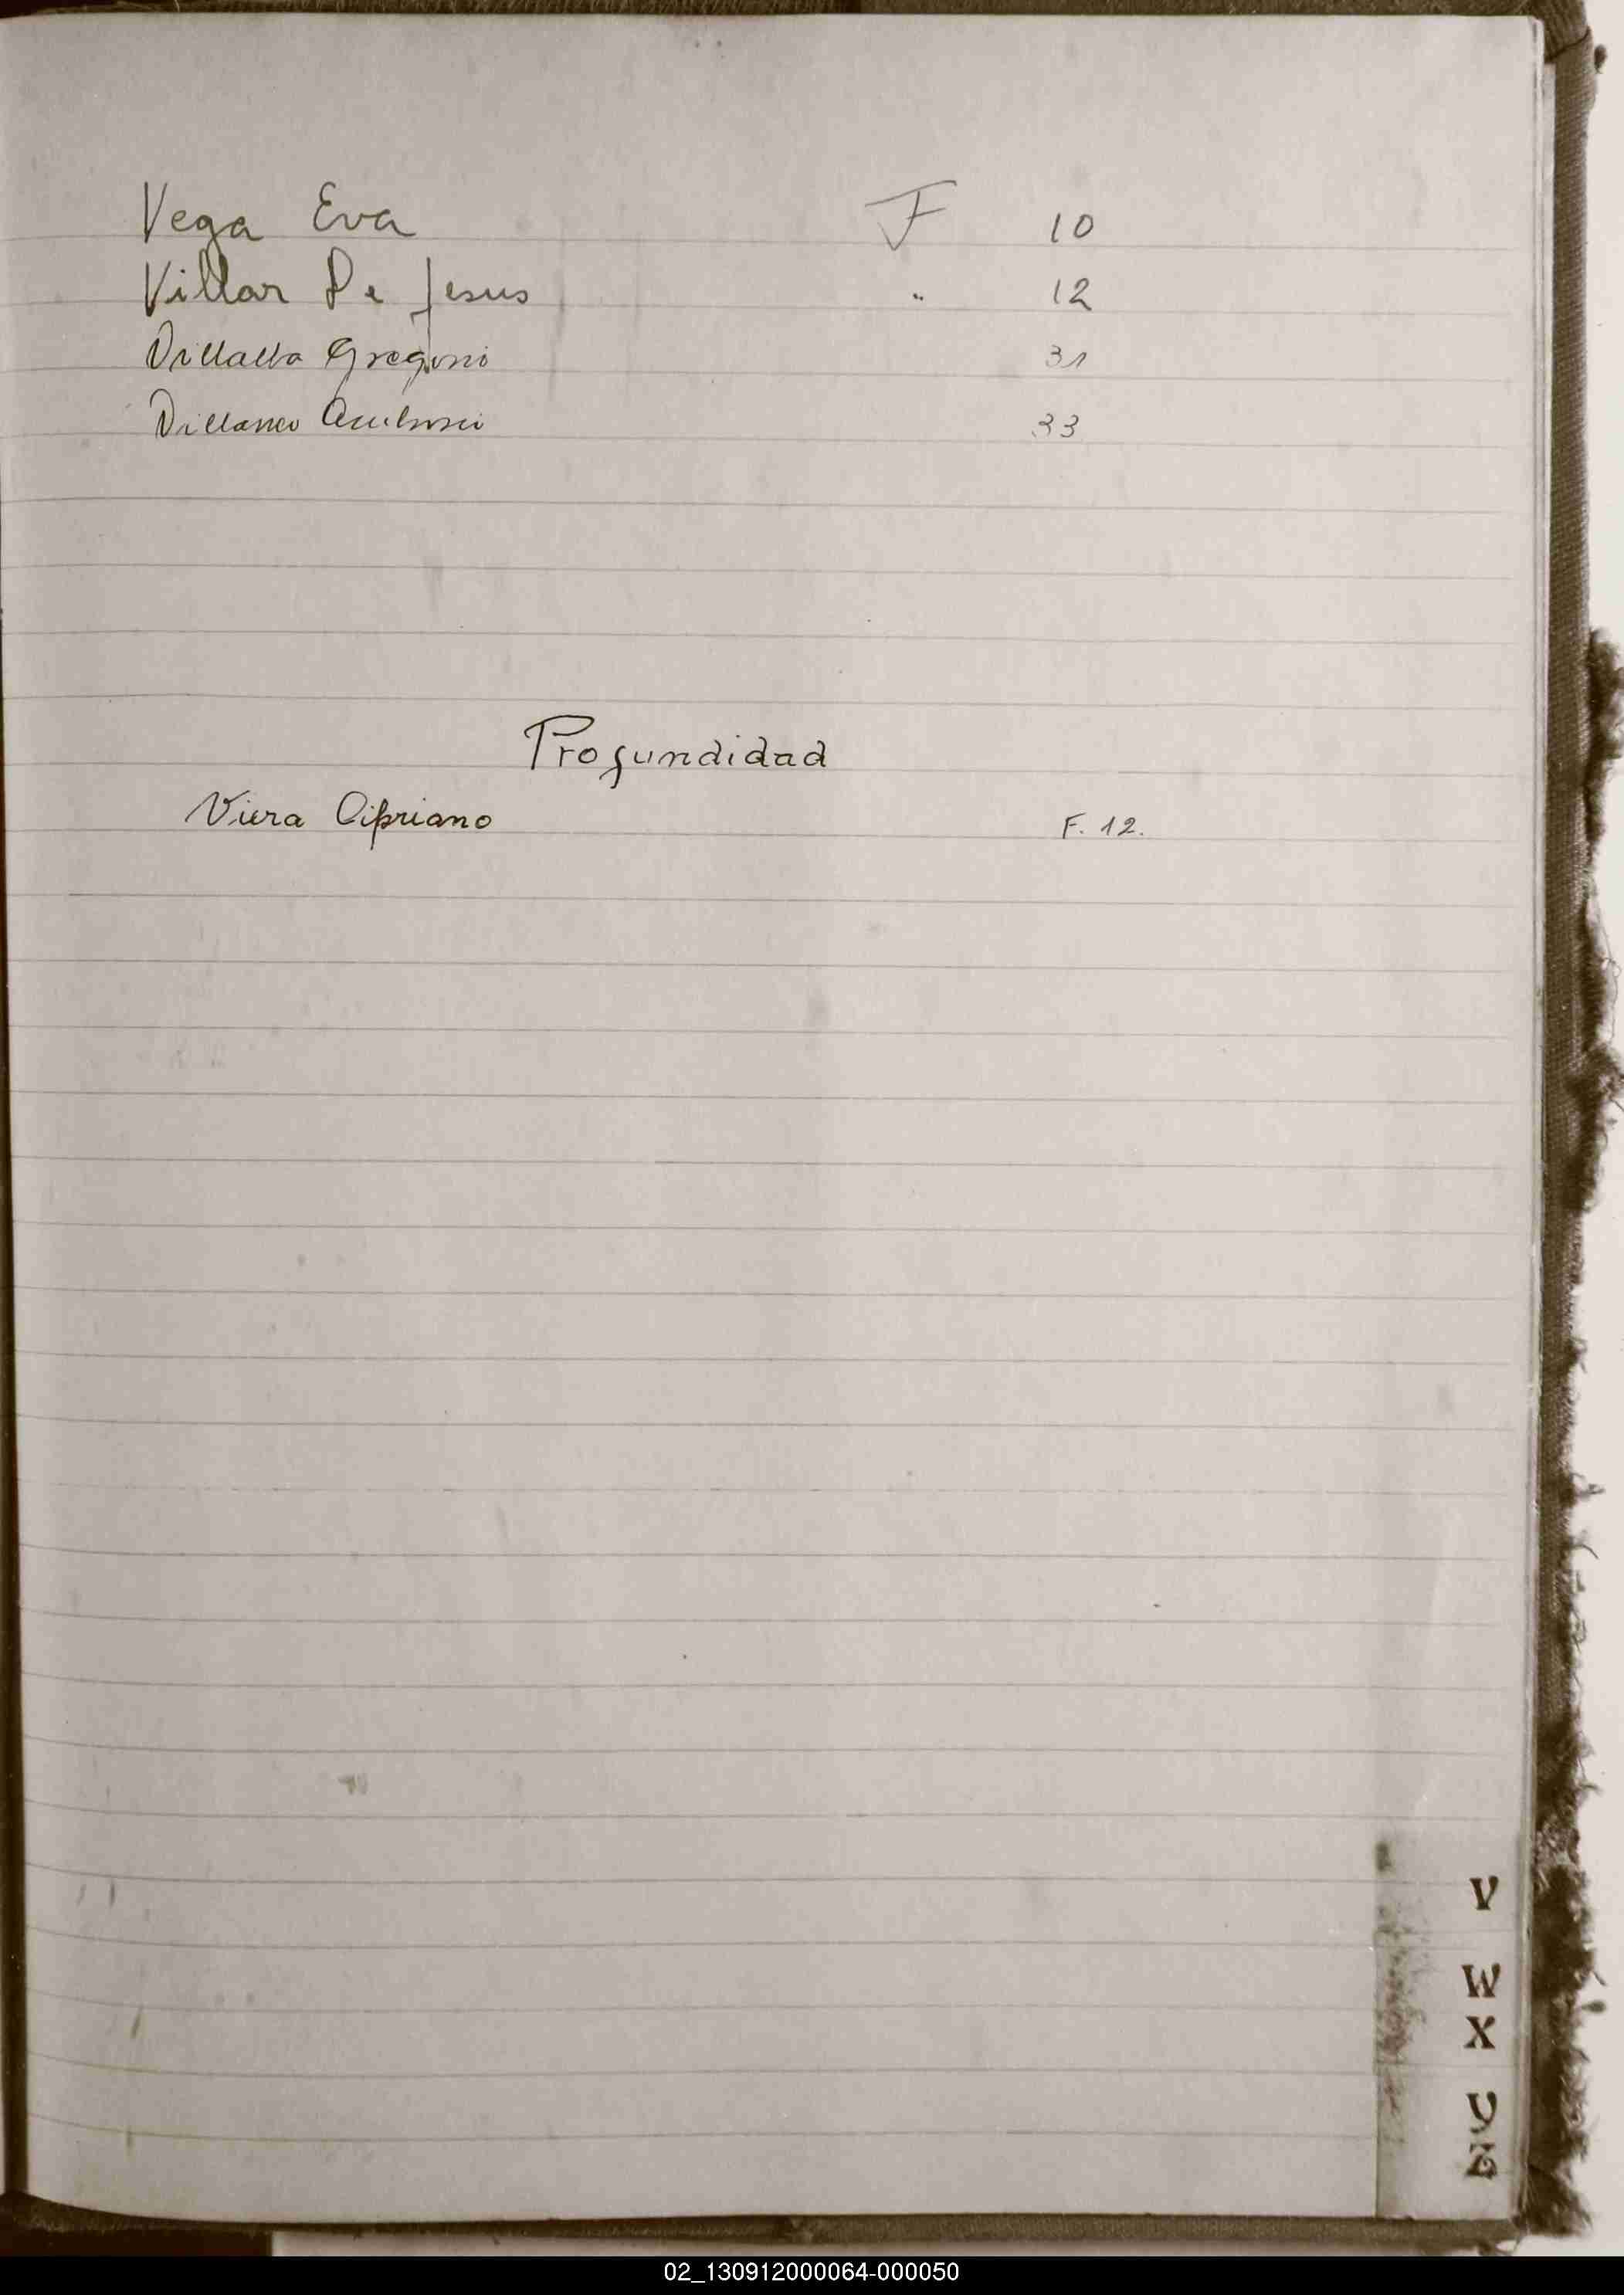 Vega Eva F 10
Villar De Jesus " 12
Villalba Gregorio 31
Villanu Ambrosio 33
Profundidad
Viera Cipriano F. 12.
V
W
X
Y
Z
02_130912000064-000050